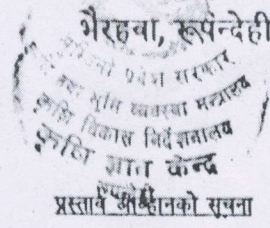 भैरहवा, रूपन्देही
लुम्बिनी प्रदेश सरकार
तथा भूमि व्यवस्था मन्त्रालय
कृषि विकास निर्देशनालय
कृषि ज्ञान केन्द्र
प्रस्ताव आव्हानको सूचना